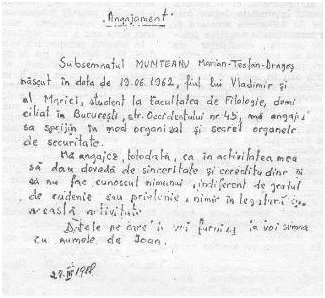 Angajament
Subsemnatul MUNTEANU Marian-Teofan-Dragoș
născut în data de 19.06.1962, fiul lui Vladimir și
al Mariei, student la Facultatea de Filologie, domi
ciliat în București, str. Occidentului nr. 45, mă angajez
sa sprijin în mod organizat și secret organele
de securitate.
Mă angajez, totodată, ca în activitatea mea
să dau dovadă de sinceritate și corectitudine și
să nu fac cunoscut nimănui, indiferent de gradul
de rudenie sau prietenie, nimic în legătură cu
această activitate.
Datele pe care le voi furniza le voi semna
cu numele de Ioan.